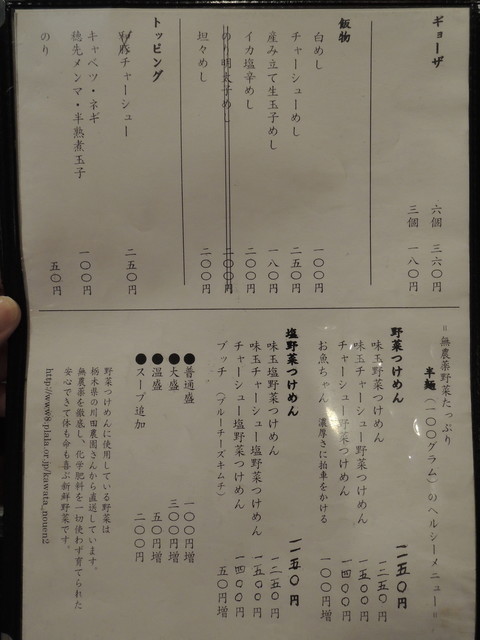 ギョーザ
六個 三六〇円
三個 一八〇円
飯物
白めし 一〇〇円
チャーシューめし 二五〇円
産み立て生玉子めし 一八〇円
イカ塩辛めし 二〇〇円
のり明太子めし 二〇〇円
坦々めし 二〇〇円
トッピング
和豚チャーシュー 二五〇円
キャベツ・ネギ
穂先メンマ・半熟煮玉子 一〇〇円
のり 五〇円
＝無農薬野菜たっぷり
半麺(一〇〇グラム)のヘルシーメニュー＝
野菜つけめん 一一五〇円
味玉野菜つけめん 一二五〇円
味玉チャーシュー野菜つけめん 一五〇〇円
チャーシュー野菜つけめん 一四〇〇円
お魚ちゃん 濃厚さに拍車をかける 一〇〇円増
塩野菜つけめん 一一五〇円
味玉塩野菜つけめん 一二五〇円
味玉チャーシュー塩野菜つけめん 一五〇〇円
チャーシュー塩野菜つけめん 一四〇〇円
ブッチ (ブルーチーズキムチ) 五〇円増
●普通盛 一〇〇円増
●大盛 三〇〇円増
●温盛 五〇円増
●スープ追加 二〇〇円
野菜つけめんに使用している野菜は
栃木県の川田農園さんから直送しています。
無農薬を徹底し、化学肥料を一切使わず育てられた
安心できて体も命も喜ぶ新鮮野菜です。
http://www8.plala.or.jp/kawata_nouen2